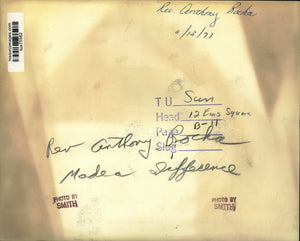 Rev. Anthony Rocka
6/12/71
TU Sun
Head 12 Ems Square
Page B-11
Slug
Rev Anthony Rocka
Made a Difference
PHOTO BY
SMITH
PHOTO BY
SMITH